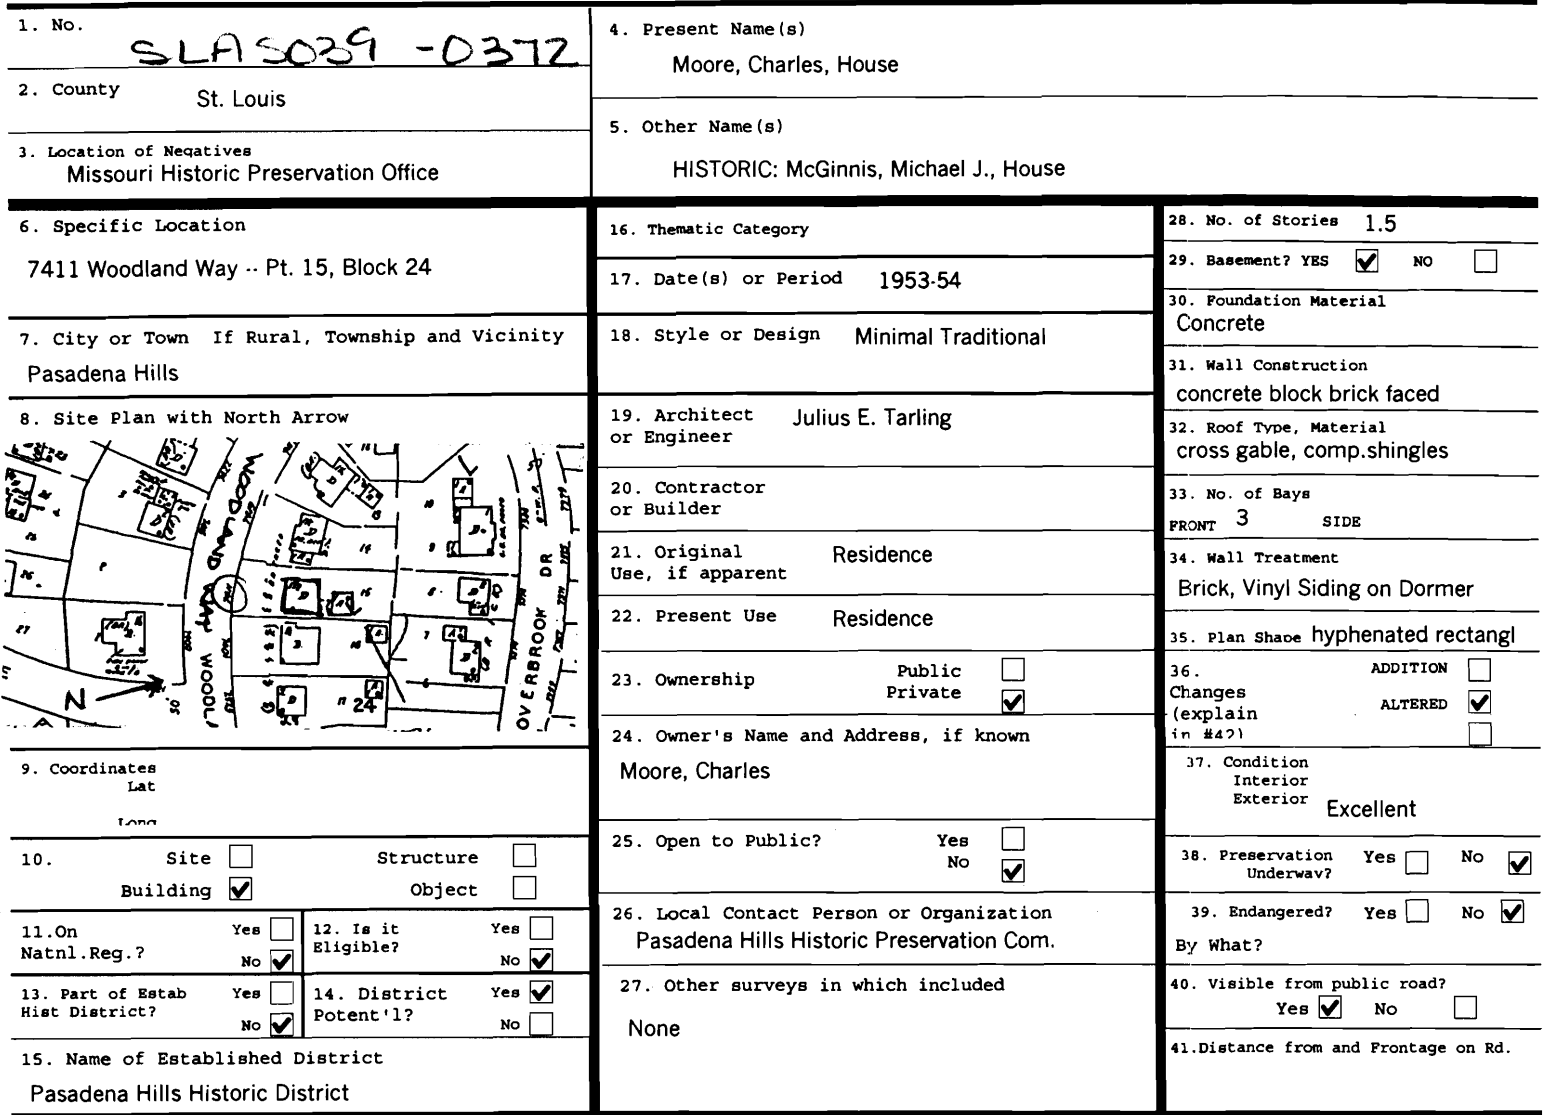 1. No.
SLAS039 -0372
2. County
St. Louis
3. Location of Negatives
Missouri Historic Preservation Office
4. Present Name(s)
Moore, Charles, House
5. Other Name(s)
HISTORIC: McGinnis, Michael J., House
6. Specific Location
7411 Woodland Way -- Pt. 15, Block 24
7. City or Town If Rural, Township and Vicinity
Pasadena Hills
8. Site Plan with North Arrow
WOODLAND WAY WOODL
OVERBROOK DR
N
24
9. Coordinates
Lat
Long
10. Site Structure
Building Object
11.On Natnl.Reg.? Yes
No
12. Is it Eligible? Yes
No
13. Part of Estab Hist District? Yes
No
14. District Potent'l? Yes
No
15. Name of Established District
Pasadena Hills Historic District
16. Thematic Category
17. Date(s) or Period 1953-54
18. Style or Design Minimal Traditional
19. Architect Julius E. Tarling
or Engineer
20. Contractor
or Builder
21. Original Residence
Use, if apparent
22. Present Use Residence
23. Ownership Public
Private
24. Owner's Name and Address, if known
Moore, Charles
25. Open to Public? Yes
No
26. Local Contact Person or Organization
Pasadena Hills Historic Preservation Com.
27. Other surveys in which included
None
28. No. of Stories 1.5
29. Basement? YES NO
30. Foundation Material
Concrete
31. Wall Construction
concrete block brick faced
32. Roof Type, Material
cross gable, comp.shingles
33. No. of Bays
FRONT 3 SIDE
34. Wall Treatment
Brick, Vinyl Siding on Dormer
35. Plan Shape hyphenated rectangl
36. ADDITION
Changes
(explain ALTERED
in #42)
37. Condition
Interior
Exterior Excellent
38. Preservation Yes No
Underway?
39. Endangered? Yes No
By What?
40. Visible from public road?
Yes No
41.Distance from and Frontage on Rd.